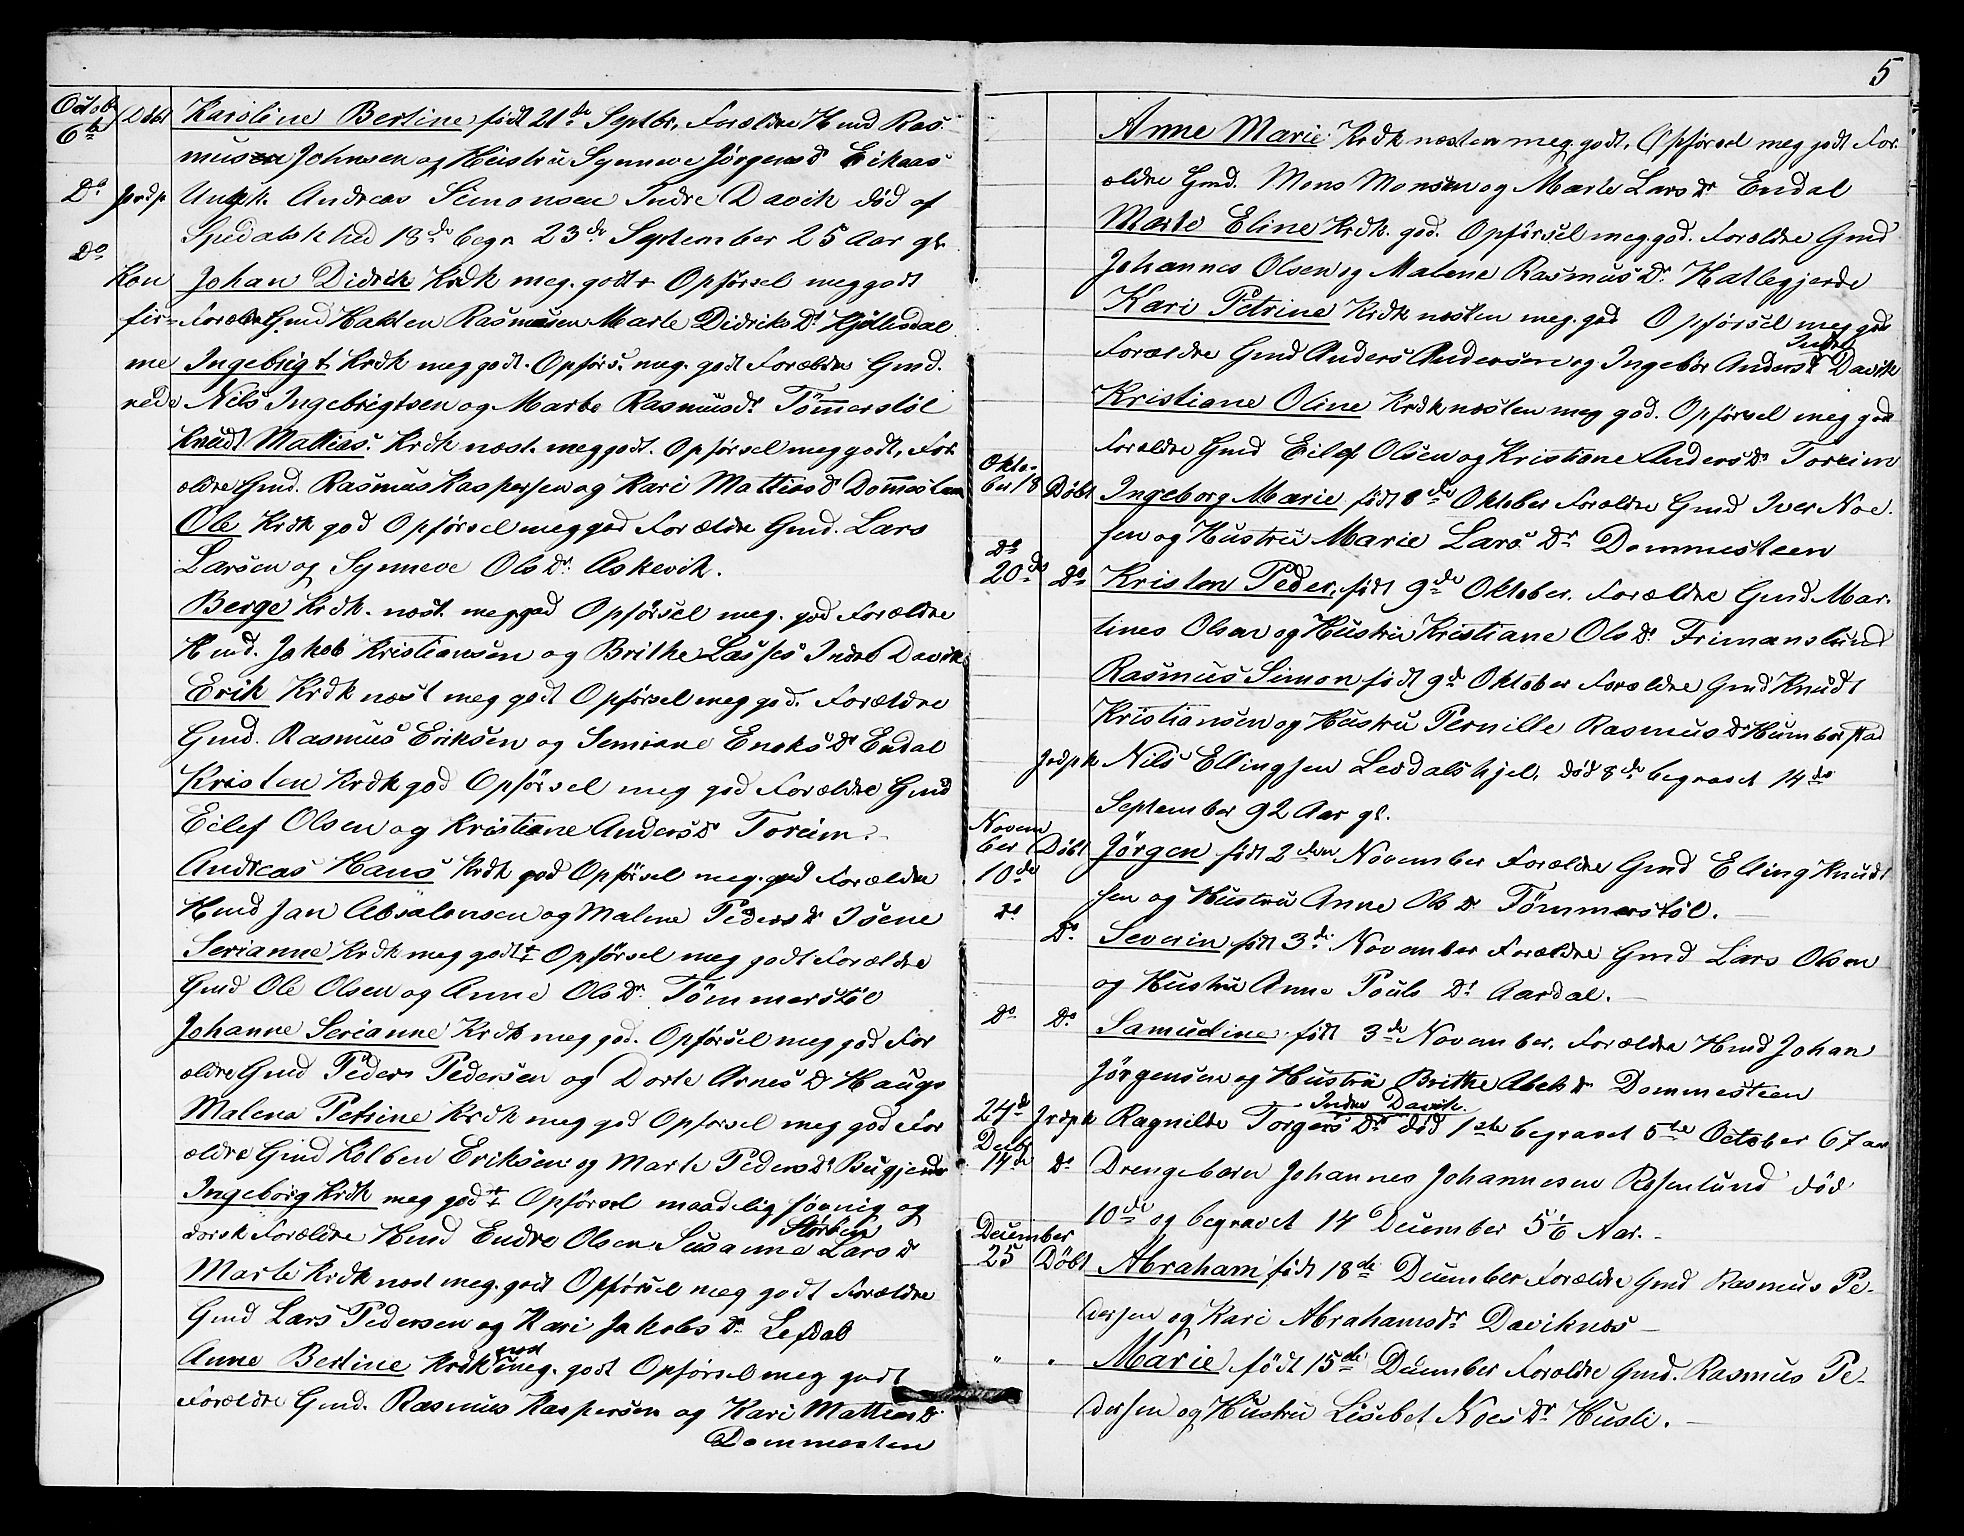 Octob 6te Døbt Karoline Bertine født 21de Septbr, Forældre Hmd Ras-
mus Johnsen og Hustru Synneve Jørgensdr Eikaas
Do Jordp Ungk. Andreas Simonsen Indre Davik død af
Spedalskhed 18de begr 23de September 25 Aar gl.
Do Kon Johan Didrik Krdk meg. godt Opførsel meg godt
fir- Forældre Gmd Halsten Rasmusen Marte Didriks Dr Hjellsdal
me Ingebrigt Krdk meg godt. Opførs. meg. godt Forældre Gmd.
rede Nils Ingebrigtsen og Marte Rasmusdr Tømmerstøl
Knudt Mattias. Krdk næst. meg godt. Opførsel meg godt, For
ældre Gmd. Rasmus Kaspersen og Kari Mattias dr Domesteen
Ole Krdk god Opførsel meg god Forældre Gmd. Lars
Larsen og Synneve Ols Dr Askevik.
Berge Krdk. næst. meg god Opførsel meg. god Forældre
Hmd. Jakob Kristiansen og Brithe Lasses Indre Davik
Erik Krdk næst meg godt Opførsel meg god. Forældre
Gmd. Rasmus Eriksen og Semiane Enoks Dr Endal
Kristen Krdk god Opførsel meg god Forældre Gmd
Eilef Olsen og Kristiane Anders Dr Toreim.
Andreas Hans Krdk god Opførsel meg. god Forældre
Hmd Jan Absalonsen og Malene Peders dr Isene
Serianne Krdk meg godt Opførsel meg godt Forældre
Gmd Ole Olsen og Anne Ols Dr Tömmerstöl
Johanne Serianne Krdk meg god. Opførsel meg god For
ældre Gmd Peder Pedersen og Dorte Arnes Dr Hauge
Malena Petrine Krdk meg god Opførsel meg god For
ældre Gmd Kolben Eriksen og Marte Peders Dr
Ingeborg Krdk meg godt Opførsel maadelig søvnig og
dorsk Forældre Hmd Endre Olsen Susanne Lars dr
Marte Krdk næst meg. godt Opførsel meg godt Forældre
Gmd Lars Pedersen og Kari Jakobs Dr Lefdal
Anne Bertine Krdk næst meg. godt Opførsel meg godt
Forældre Gmd. Rasmus Kaspersen og Kari Mattias Dr
Dommesten
5
Anne Marie Krdk næsten meg. godt. Opførsel meg godt For-
ældre Gmd. Mons Monsen og Marte Lars Dr Endal
Marte Eline Krdk. god. Opførsel meg. god. Forældre Gmd
Johannes Olsen og Malene Rasmus Dr Hatlegjerde
Kari Petrine Krdk næsten meg. god Opførsel meg god
Forældre Gmd Anders Andersen og Ingebor Anders dr Indre Davik
Kristiane Oline Krdk næsten meg god. Opførsel meg god
Forældre Gmd Eilef Olsen og Kristiane Anders Dr Toreim
Oktober 18 Døbt Ingeborg Marie født 8de Oktober Forældre Gmd Iver Noe-
sen og Hustru Marie Lars Dr Dommesteen
Do 20de Do Kristen Peder, født 9de Oktober. Forældre Gmd Mar-
tines Olsen og Hustru Kristiane Ols Dr Frimanslund
Rasmus Simon født 9de Oktober Forældre Gmd Knudt
Kristiansen og Hustru Pernille Rasmus dr Humborstad
Jordpk Nils Ellingsen Levdalshjel, død 8de begravet 14de
September 92 Aar gl.
November 10de Døbt Jørgen født 2den November Forældre Gmd Elling Knudt
sen og Hustru Anne Ols Dr Tömmerstöl.
Do Do Severin født 3de November Forældre Gmd Lars Olsen
og Hustru Anne Pouls Dr Aardal.
Do Do Samudine født 3de November. Forældre Hmd Johan
Jörgensen og Hustru Brithe Abels dr Dommesteen
24de Jordpk Ragnilde Torgers Dr Indre Davik. død 1ste begravet 5te October 67 aar
Decbr 14de Do Drengebarn Johannes Johannesen Rosenlund død
10de og begravet 14 December 5 1/6 Aar.
December 25 Døbt Abraham født 18de December Forældre Gmd Rasmus Pe-
dersen og Kari Abrahamsdr Daviknes
" " Marie født 15de December Forældre Gmd. Rasmus Pe-
dersen og Hustru Lisebet Noes Dr Husli.